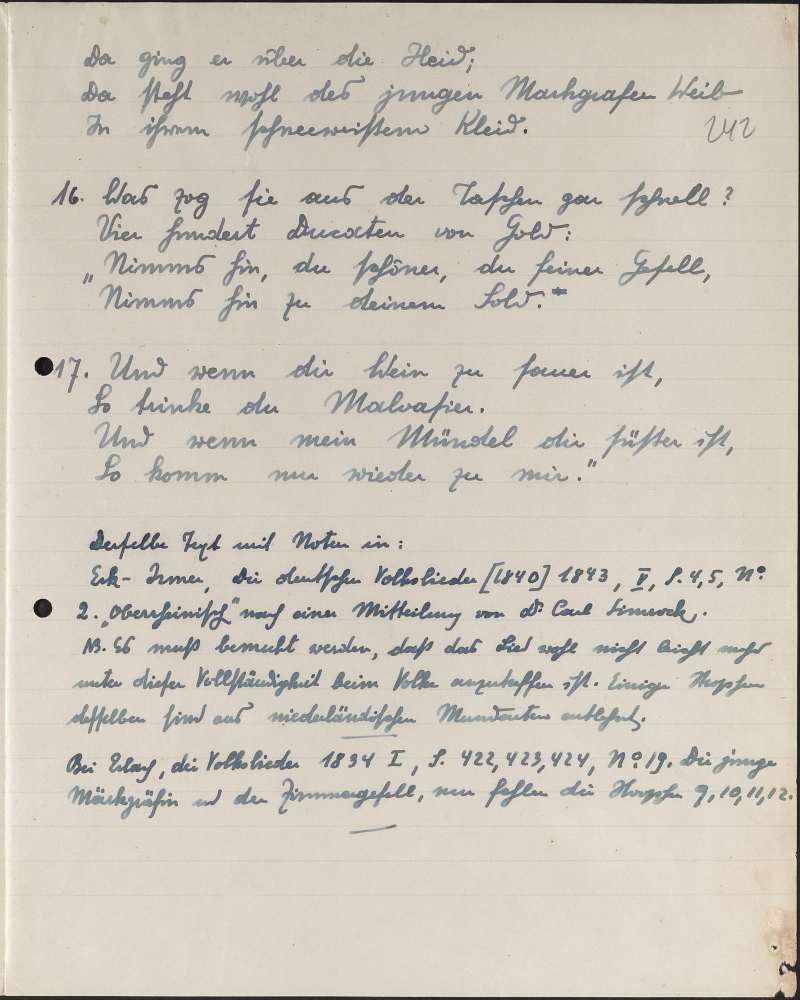 Da ging er über die Heid;
Da steht wohl des jungen Markgrafen Weib
In ihrem schneeweißem Kleid.
242
16. Was zog sie aus der Taschen gar schnell?
Vier hundert Ducaten von Gold:
„Nimms hin, du schöner, du feiner Gesell,
Nimms hin zu deinem Sold."
17. Und wenn dir Wein zu sauer ist,
So trinke du Malvasier.
Und wenn mein Mündel dir süßer ist,
So komm nur wieder zu mir."
Derselbe Text mit Noten in:
Erk-Irmer, Die deutschen Volkslieder [1840] 1843, V, S. 4,5, No.
2. „Oberrheinisch" nach einer Mitteilung von Dr. Carl Simrock.
NB. Es muß bemerkt werden, daß das Lied wohl nicht leicht mehr
unter dieser Vollständigkeit beim Volke anzutreffen ist. Einige Strophen
desselben sind aus niederländischen Mundarten entlehnt.
Bei Erlach, die Volkslieder 1834 I, S. 422,423,424, No. 19. Die junge
Märkgräfin und der Zimmergesell, nur fehlen die Strophen 9,10,11,12.